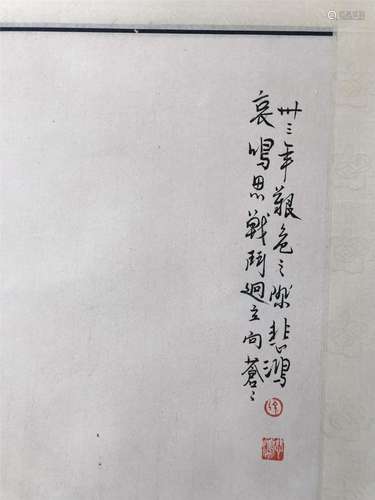 卅三年艱危之際悲鴻
哀鳴思戰鬥迥立向蒼〻